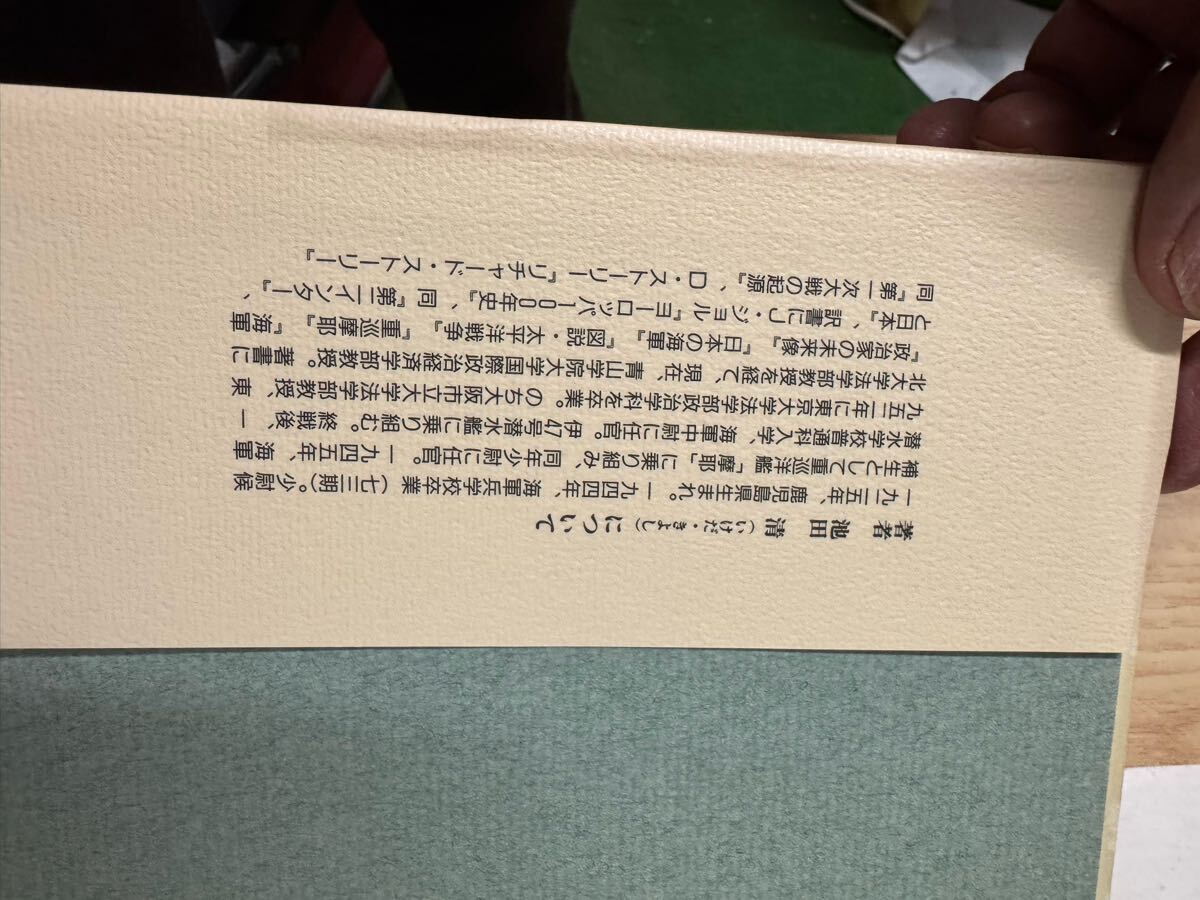 著者　池田　清（いけだ・きよし）について
一九二五年、鹿児島県生まれ。一九四四年、海軍兵学校卒業（七三期）。少尉候
補生として重巡洋艦「摩耶」に乗り組み、同年少尉に任官。一九四五年、海軍
潜水学校普通科入学、海軍中尉に任官。伊47号潜水艦に乗り組む。終戦後、一
九五二年に東京大学法学部政治学科を卒業。のち大阪市立大学法学部教授、東
北大学法学部教授を経て、現在、青山学院大学国際政治経済学部教授。著書に
『政治家の未来像』『日本の海軍』『図説・太平洋戦争』『重巡摩耶』『海軍
と日本』、訳書にJ・ジョル『ヨーロッパ100年史』、同『第二インター』、
同『第一次大戦の起源』、D・ストーリー『リチャード・ストーリー』